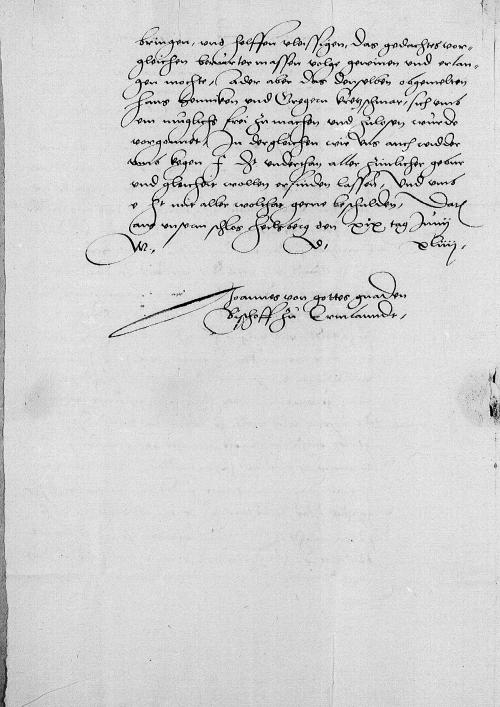 bringen, und helffen vleissigen, Das gedachtes vor-
gleichen berurtermassen volge gewinnen und erlan-
gen mochte, Ader aber das denselben obgemelten
Hans Henniken und Gregern kretzschmar, sich uns
em muglichst frei zu machen und zulosen wurde
vorgonnet, In dergleichen wir uns auch widder
umb kegen F. Dt. underthan aller zimlicher gebur
und gleicheit wollen erfinden lassen, Und umb
e Dt mit aller wolthat gerne beschulden, Dat
aus unserm schlos Heilsberg den xix tag Junij
M. D. xliiij.
Joannes von gottes gnaden
Bischoff zu Ermlanndt.